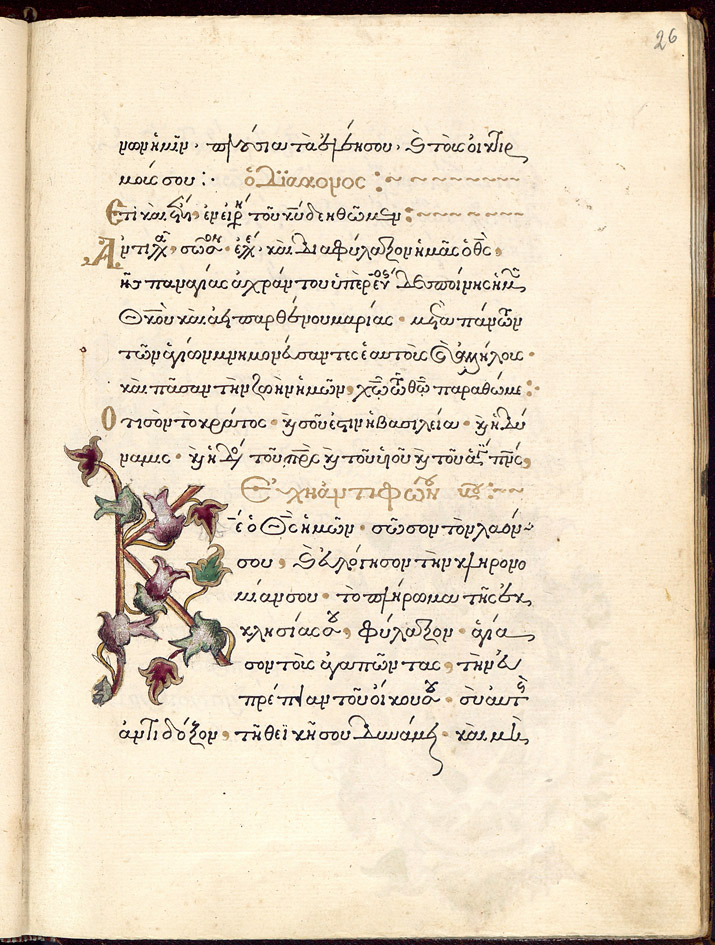 26
νωνἡμῖν· πλούσια τὰ ἐλέη σου, καὶ τοὺς οἰκτιρ
μούς σου :· ὁ Διάκονος :~
Ἔτι καὶ ἔτι, ἐν εἰρή τοῦ κυ δεηθῶμεν :~
Ἀντιλ, σῶσ, ἐλέ, καὶ διαφύλαξον ἡμᾶς ὁ θς,
τῆς παναγίας ἀχράν του ὑπερευ δεσποίνης ἡμ
Θκου καὶ ἀει παρθένου μαρίας · μετα πάντων
τῶν ἁγίων μνημονεύσαντες ἑαυτοὺς καὶ ἀλλήλους ·
καὶ πᾶσαν τὴν ζωὴν ἡμῶν, χῶ τῶ θῶ παραθώμε :
Ὅτι σὸν τὸ κράτος · καὶ σοῦ ἐστιν ἡ βασιλεία · καὶ ἡ δύ
ναμις · καὶ ἡ δό τοῦ πρς καὶ τοῦ υἱοῦ καὶ τοῦ ἁγ πνς,
Εὐχὴ ἀντιφών
Κέ ὁ Θς ἡμῶν · σῶσον τὸν λαόν
σου, εὐλόγησον τὴν κληρονο
μίαν σου · τὸ πλήρωμα τῆς ἐκ
κλησίας σου, φύλαξον · ἁγία
σον τοὺς ἀγαπῶντας, τὴν εὐ
πρέπειαν τοῦ οἴκου σου · σὺ αὐτοὺς
ἀντιδόξασον, τῇ θεϊκῇ σου δυνάμει · καὶ μὴ